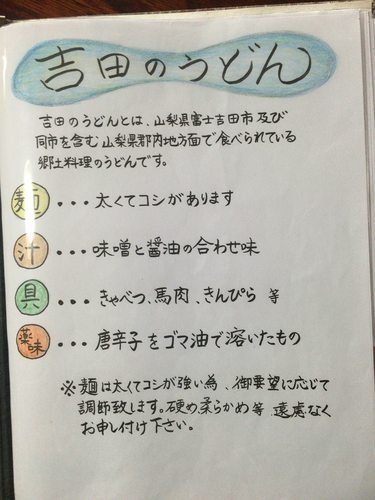 吉田のうどん
吉田のうどんとは、山梨県富士吉田市及び
同市を含む山梨県郡内地方面で食べられている
郷土料理のうどんです。
麺・・・太くてコシがあります
汁・・・味噌と醤油の合わせ味
具・・・きゃべつ、馬肉、きんぴら 等
薬味・・・唐辛子をゴマ油で溶いたもの
※麺は太くてコシが強い為、御要望に応じて
調節致します。硬め柔らかめ等 遠慮なく
お申し付け下さい。